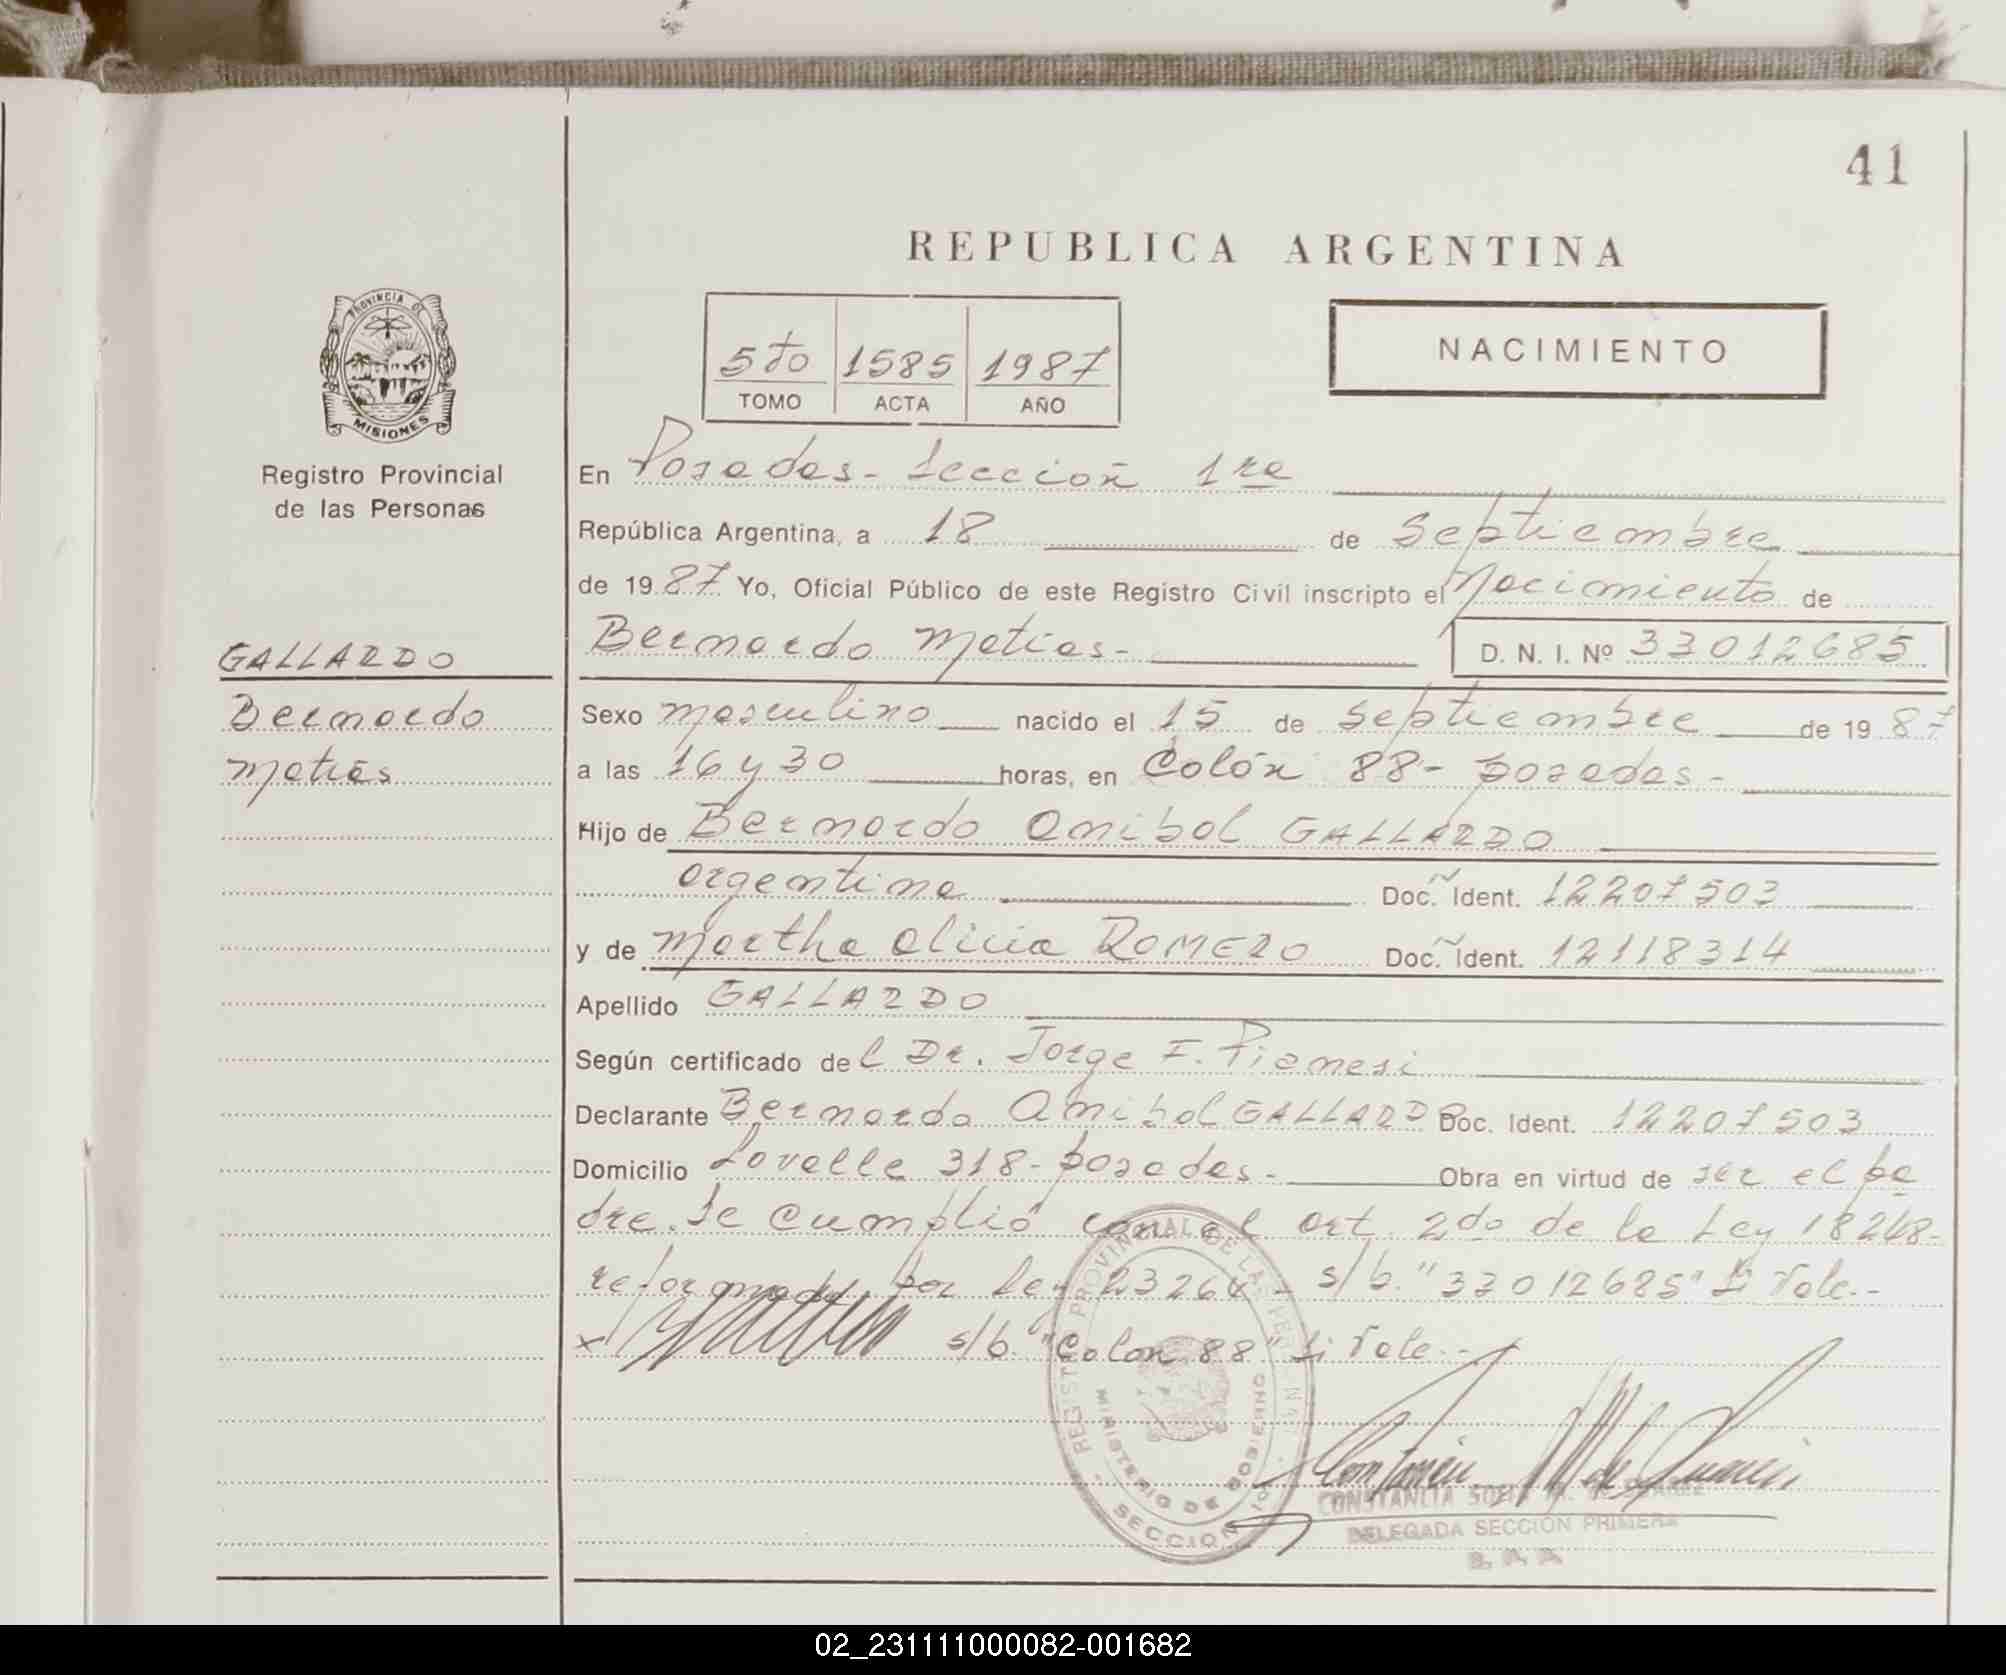 41
REPUBLICA ARGENTINA
5to 1585 1987
TOMO ACTA AÑO
NACIMIENTO
PROVINCIA DE
MISIONES
Registro Provincial
de las Personas
GALLARDO
Bernardo
Matías
En Posadas - Sección 1ra
República Argentina, a 18 de Septiembre
de 1987 Yo, Oficial Público de este Registro Civil inscripto el Nacimiento de
Bernardo Matias - D. N. I. Nº 33012685
Sexo masculino nacido el 15 de Septiembre de 1987
a las 16 y 30 horas, en Colón 88 - posadas -
Hijo de Bernardo Anibal GALLARDO
argentina Doc. Ident. 12207503
y de Martha Alicia ROMERO Doc. Ident. 12118314
Apellido GALLARDO
Según certificado del Dr. Jorge F. Pianesi
Declarante Bernardo Anibal GALLARDO Doc. Ident. 12207503
Domicilio Lavalle 318 - posadas - Obra en virtud de ser el pa
dre. Se cumplió con el art. 2do de la Ley 18248-
reformada por ley 23264 - s/b. "33012685" Si Vale.-
x s/b. "Colon 88" Si Vale.-
REGISTRO PROVINCIAL DE LAS PERSONAS
MINISTERIO DE GOBIERNO
SECCION 1º
CONSTANCIA
DELEGADA SECCIÓN PRIMERA
02_231111000082-001682